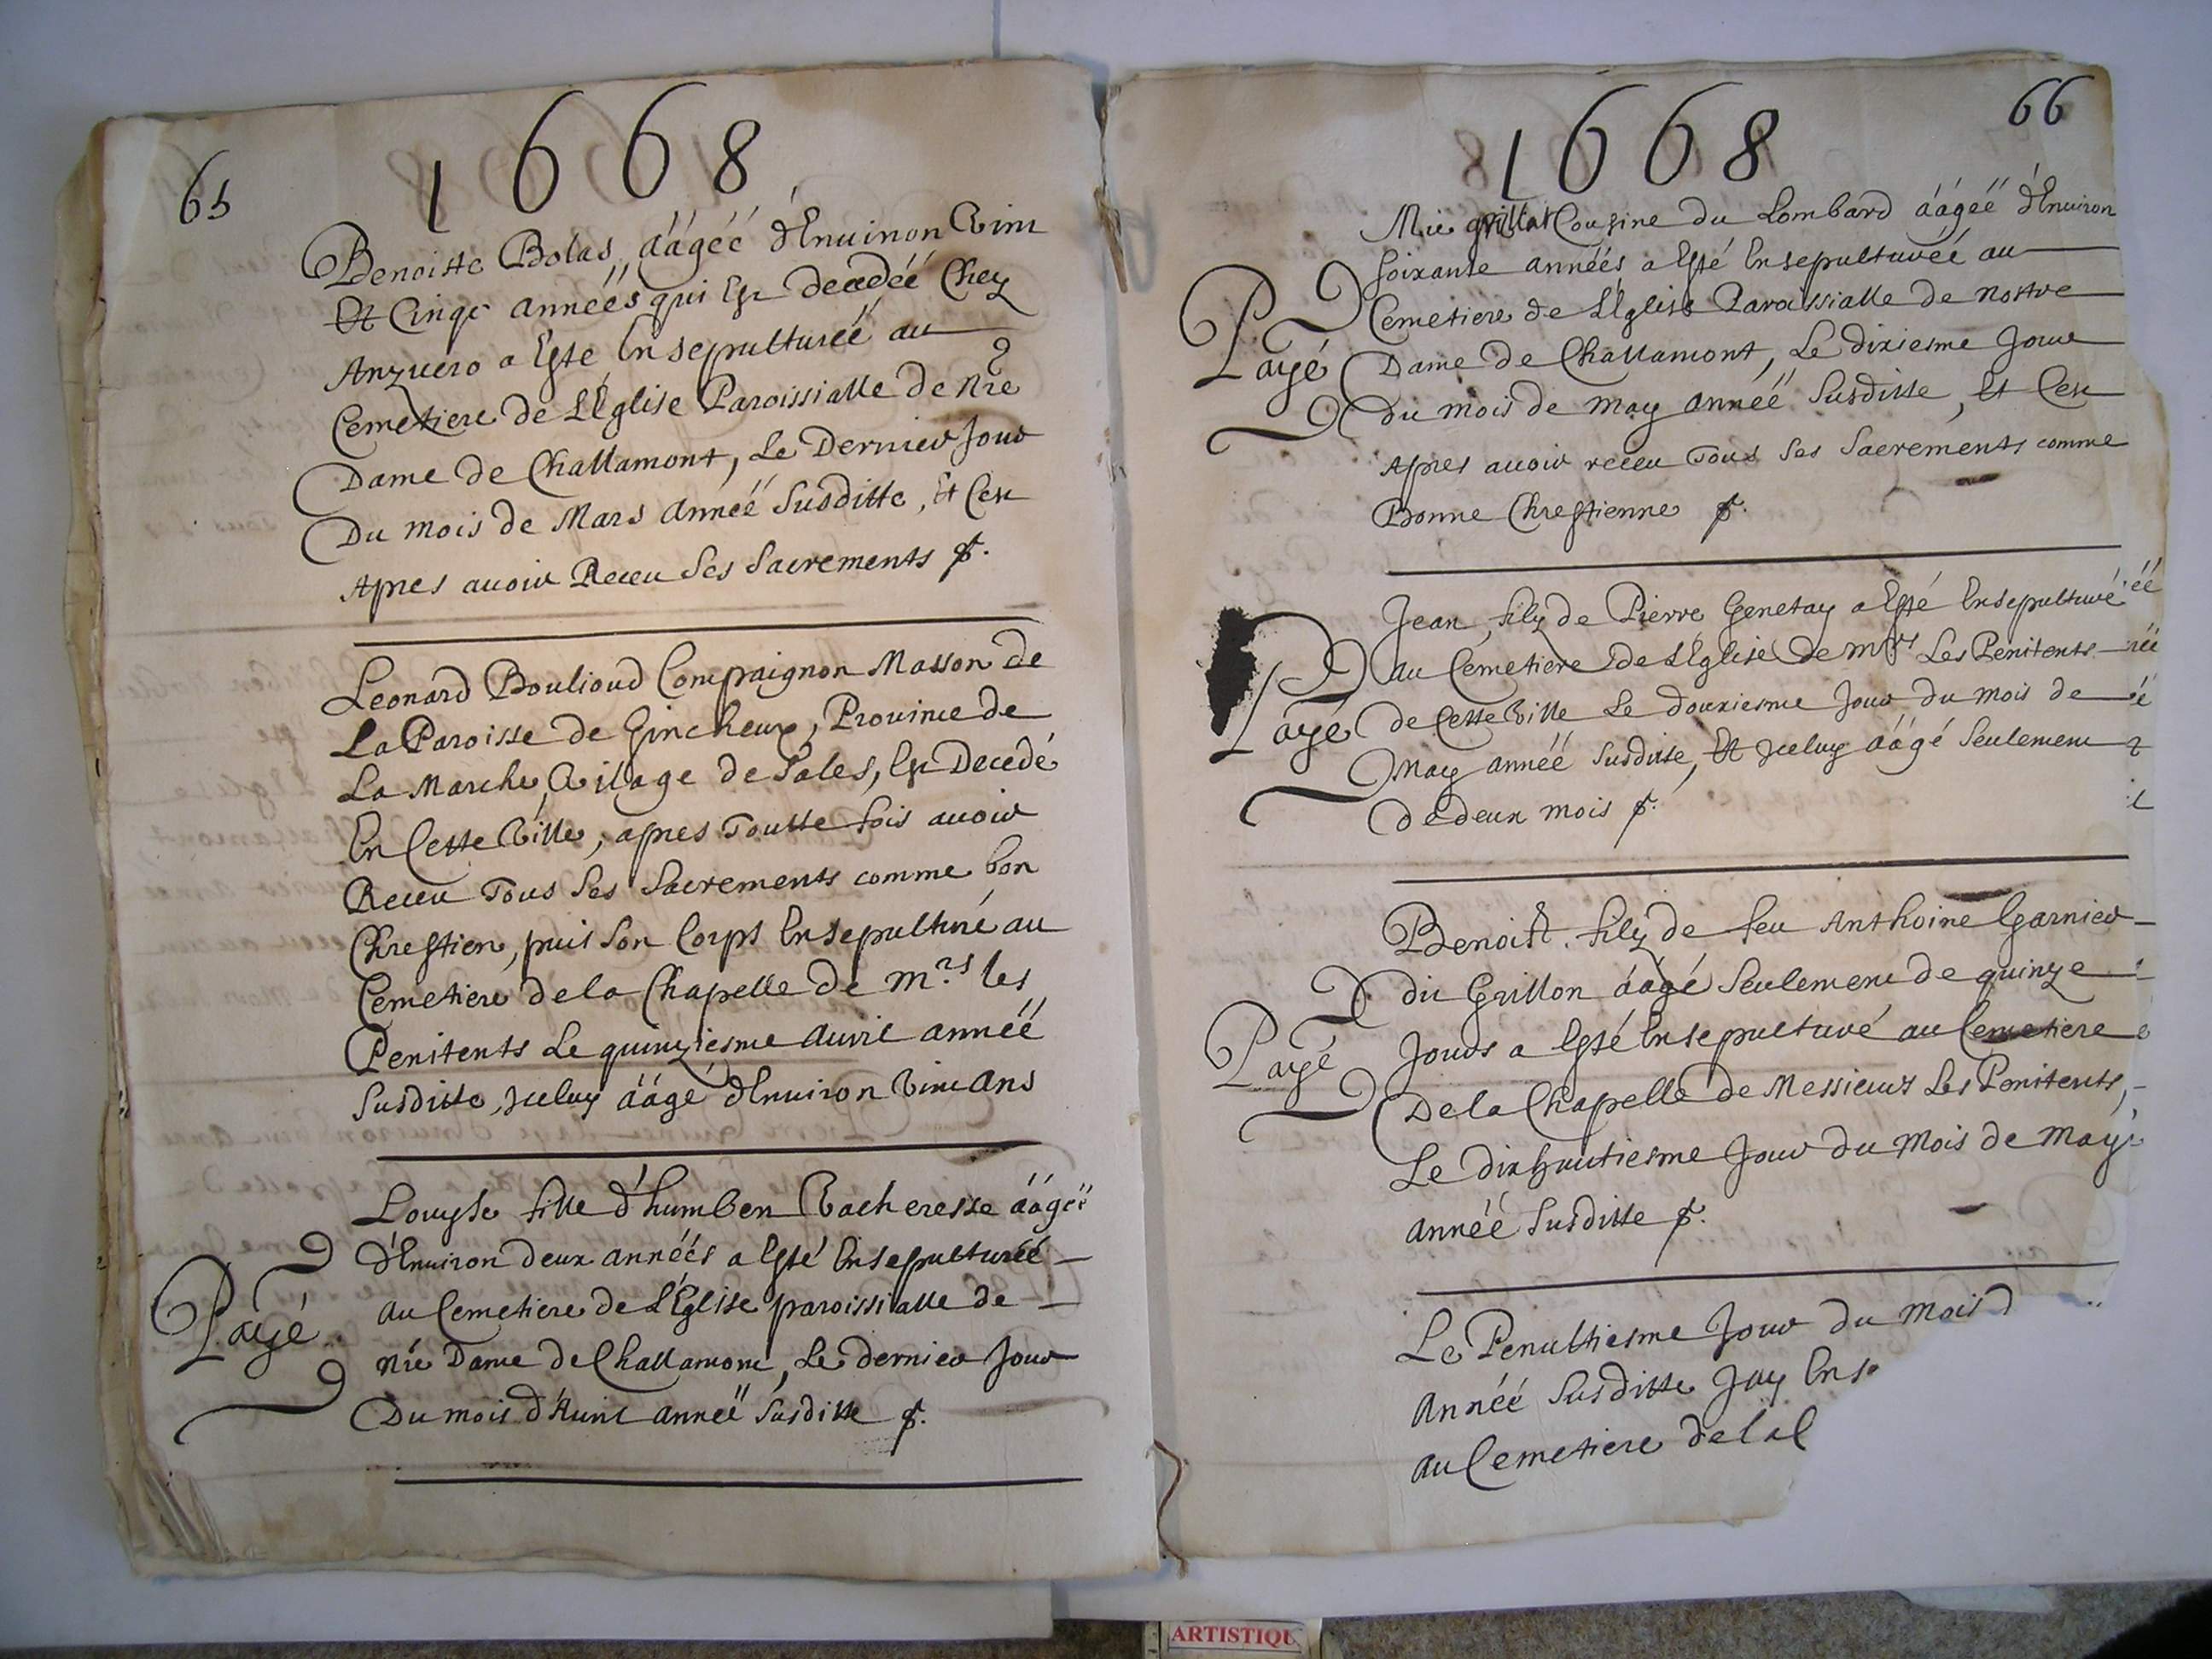 65
1668
Benoiste Bolas, áágéé d'Enuiron Vint
Et Cinqc annéés qui Est decedéé Chez
Anzuero a Esté Ensepulturéé au
Cemetiere de L'Eglise Paroissialle de nre
Dame de Challamont, Le Dernier Jour
Du mois de Mars annéé Susditte, Et Cest
Apres auoir Receu Ses Sacrements
Leonard Boulioud Compaignon Masson de
La Paroisse de Gincheux, Prouince de
La Marche, Vilage de Sales, Est Decedé
En Cette Ville, apres Toutte fois auoir
Receu Tous Ses Sacrements comme bon
Chrestien, puis Son Corps Ensepulturé au
Cemetiere de la Chapelle de mrs les
Penitents Le quinziesme Auril annéé
Susditte, Iceluy áágé d'Enuiron Vint ans
Payé
Louyse fille d'humbert Vacheresse áágéé
d'Enuiron deux annéés a Esté Ensepulturéé
au Cemetiere de L'Eglise paroissialle de
nre Dame de Challamont, Le dernier Jour
Du mois d'Auril annéé Susditte
66
1668
Payé
Mie grillat Cousine du Lombard áágéé d'Enuiron
Soixante annéés a Esté Ensepulturéé au
Cemetiere de L'Eglise Paroissialle de nostre
Dame de Challamont, Le dixiesme Jour
du mois de may annéé Susditte, Et Cest
Apres auoir receu Tous Ses Sacrements comme
Bonne Chrestienne
Payé
Jean, filz de Pierre Genetay a Esté Ensepulturé
au Cemetiere de L'Eglise de mrs Les Penitents
de Cette Ville Le douxiesme Jour du mois de
May annéé Susditte, Et Iceluy áágé Seulement
de deux mois
Payé
Benoist filz de feu Anthoine Garnier
du Grillon áágé Seulement de quinze
Jours a Esté Ensepulturé au Cemetiere
De la Chapelle de Messieurs Les Penitents,
Le dixhuitiesme Jour du Mois de May
annéé Susditte
Le Penultiesme Jour du mois d
Annéé Susditte Jay Ense
au Cemetiere de la C
ARTISTIQU